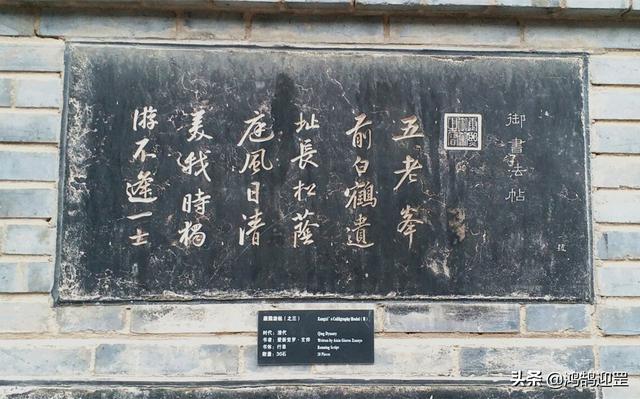 御書法帖
五老峯
前白鶴遺
址長松蔭
庭風日清
美我時獨
游不逢一士
(之三)
Kangxi's Calligraphy Model
时代:清代
Qing Dynasty
书者:爱新觉罗·玄烨
Written by Aisin Gioro Xuanye
书体:行书
Running Script
数量:30石
30 Pieces
头条 @鸿鹄迎罡